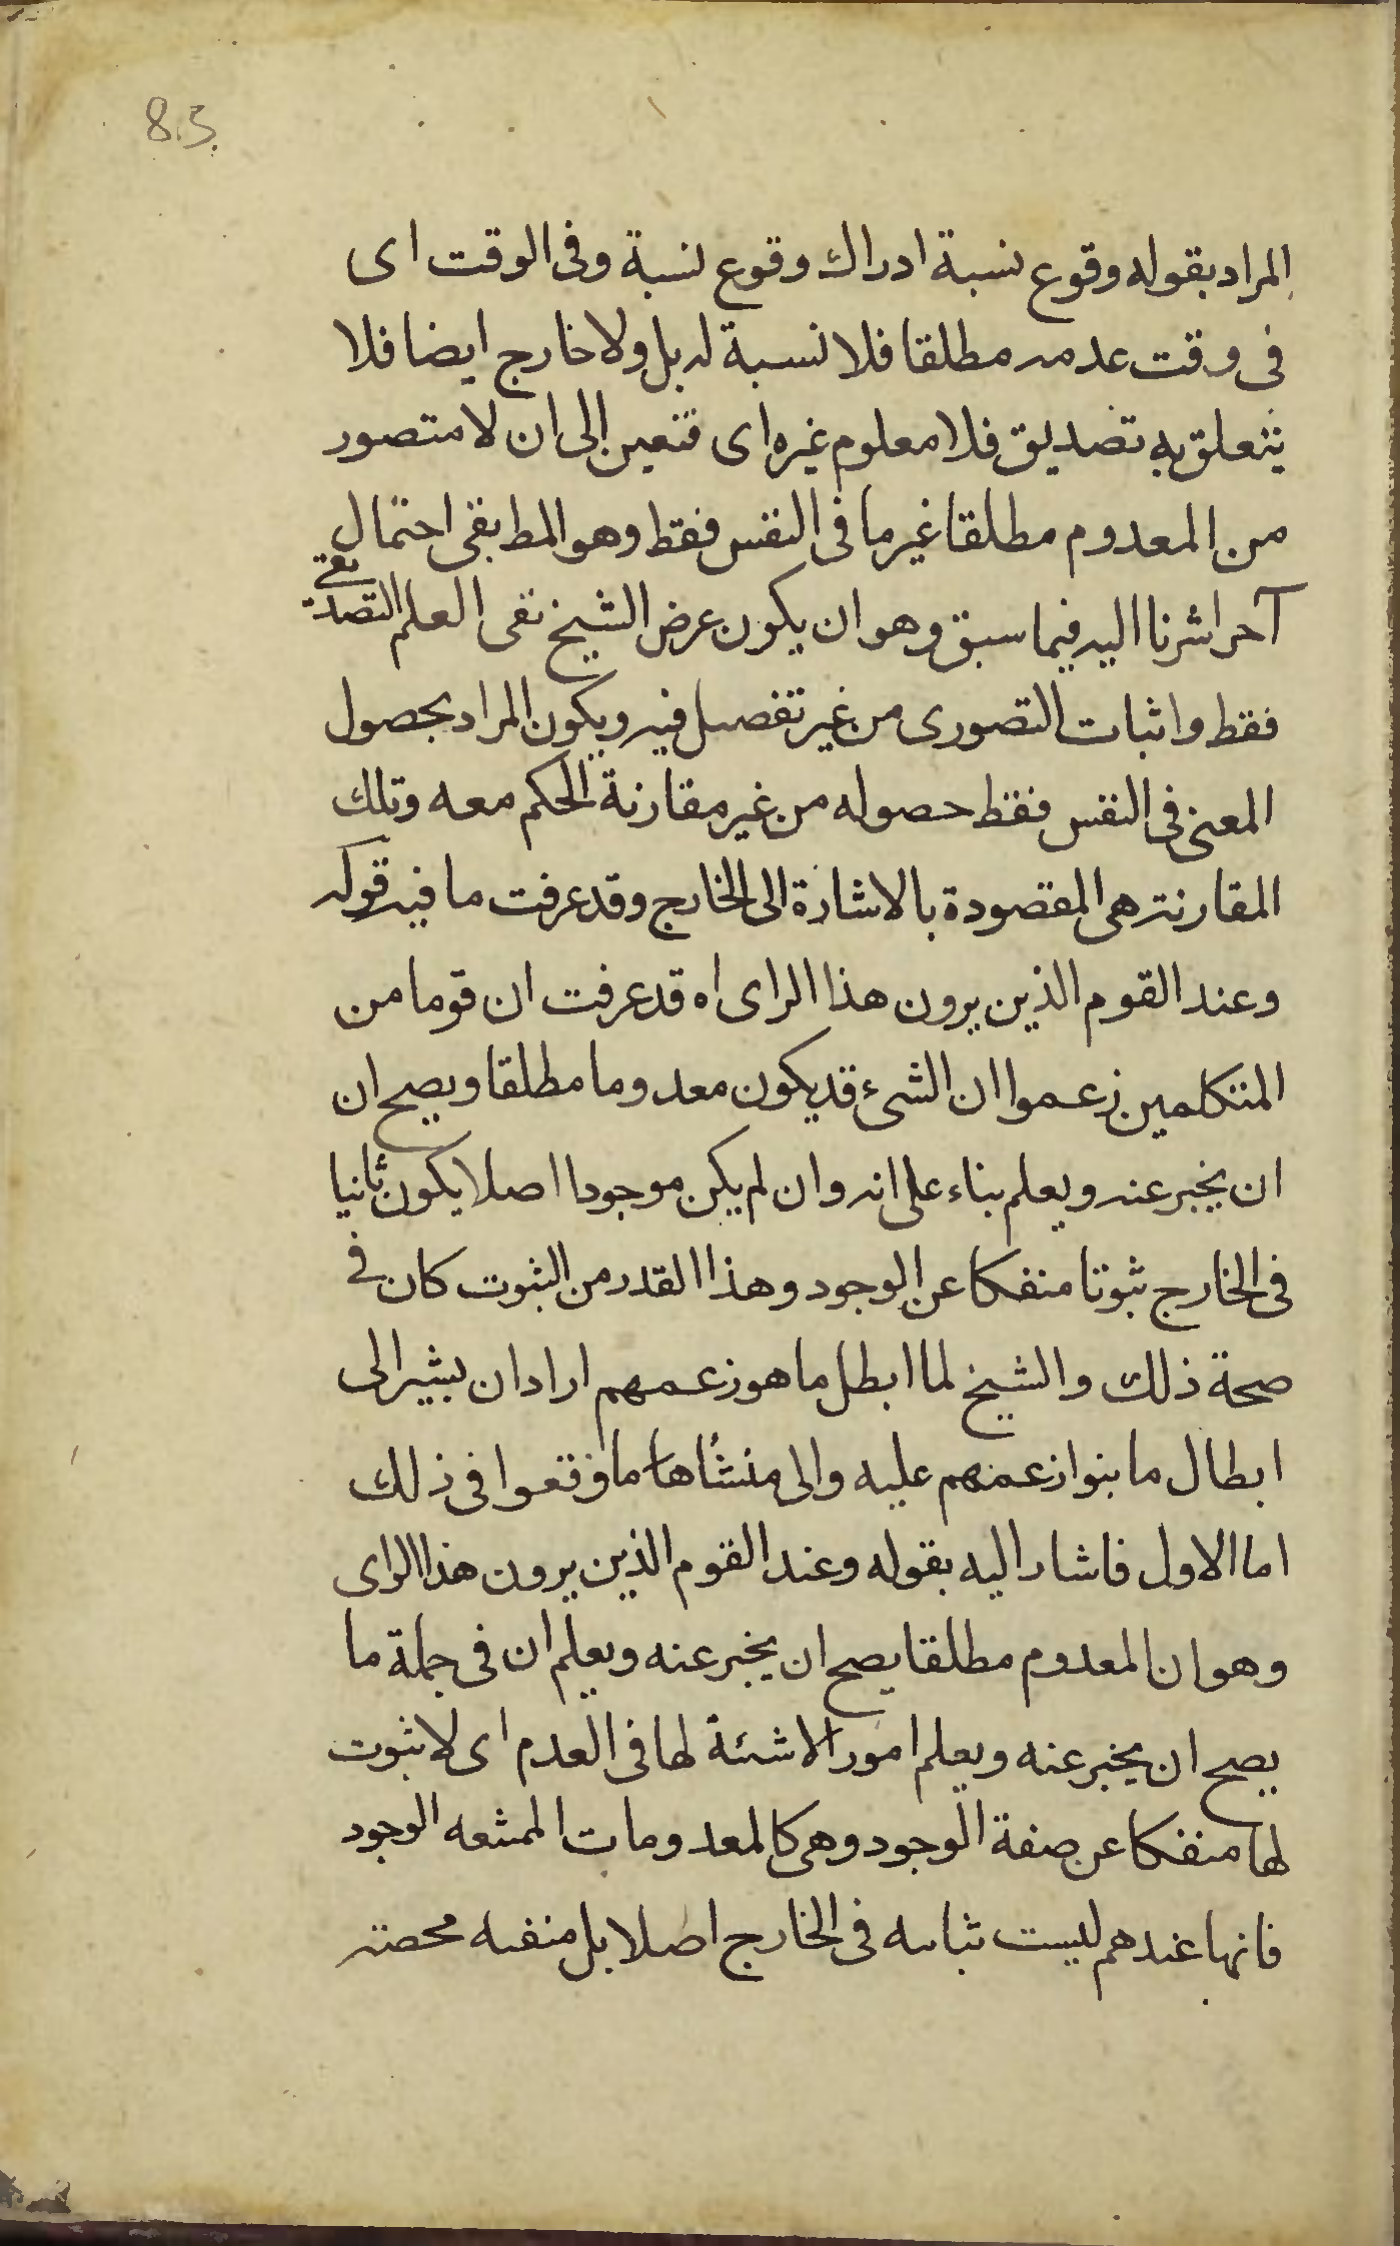 83
المراد بقوله وقوع نسبة ادراك وقوع نسبة وفى الوقت اى
فى وقت عدمه مطلقا فلا نسبة له بل ولا خارج ايضا فلا
يتعلق به تصديق فلا معلوم غيره اى فتعين الى ان لا متصور
من المعدوم مطلقا غير ما فى النفس فقط وهو المط بقى احتمال
آخر اشرنا اليه فيما سبق وهو ان يكون غرض الشيخ نفى العلم التصديقى
فقط واثبات التصورى من غير تفصيل فيه ويكون المراد بحصول
المعنى فى النفس فقط حصوله من غير مقارنة الحكم معه وتلك
المقارنة هى المقصودة بالاشارة الى الخارج وقد عرفت ما فيه قوله
وعند القوم الذين يرون هذا الراى اه قد عرفت ان قوما من
المتكلمين زعموا ان الشىء قد يكون معدوما مطلقا ويصح ان
ان يخبر عنه ويعلم بناء على انه وان لم يكن موجودا اصلا يكون ثانيا
فى الخارج ثبوتا منفكا عن الوجود وهذا القدر من الثبوت كان فى
صحة ذلك والشيخ لما ابطل ما هو زعمهم اراد ان يشير الى
ابطال ما بنوا زعمهم عليه والى منشأها ما وقعوا فى ذلك
اما الاول فاشار اليه بقوله وعند القوم الذين يرون هذا الراى
وهو ان المعدوم مطلقا يصح ان يخبر عنه ويعلم ان فى جملة ما
يصح ان يخبر عنه ويعلم امورا لا شيئة لها فى العدم اى لا ثبوت
لها منفكا عن صفة الوجود وهى كالمعدومات الممتنعه الوجود
فانها عندهم ليست ثابته فى الخارج اصلا بل منفيه محضة